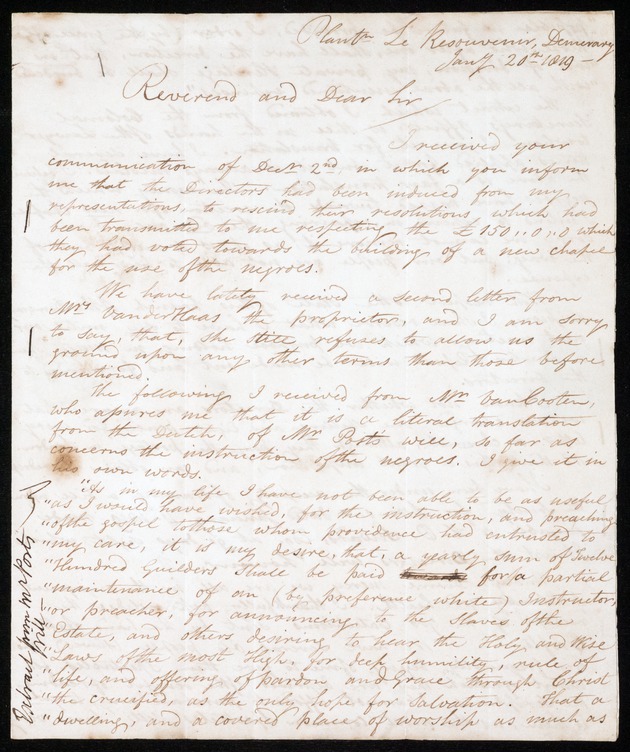 Plantn Le Resouvenir, Demerary
Jany 20th 1819 —
Reverend and Dear Sir
I received your
communication of Decr 2nd, in which you inform
me that the Directors had been induced from my
representations, to rescind their resolutions which had
been transmitted to me respecting the £150,,0,,0 which
they had voted towards the building of a new chapel
for the use of the negroes.
We have lately received a second letter from
Mrs VanderHaas the proprietor, and I am sorry
to say, that, she still refuses to allow us the
ground upon any other terms than those before
mentioned.
The following I received from Mr VanCooten,
who assures me that it is a literal translation
from the Dutch, of Mr Post's will, so far as
concerns the instruction of the negroes. I give it in
his own words.
"As in my life I have not been able to be as useful
"as I would have wished, for the instruction, and preaching
"of the gospel to those whom providence had entrusted to
"my care, it is my desire, that, a yearly sum of Twelve
"Hundred Guilders shall be paid for a partial
"maintenance of an (by preference white) Instructor,
"or preacher, for announcing to the Slaves of the
"Estate, and others desiring to hear the Holy and Wise
"Laws of the most High, for deep humility, rule of
"life, and offering of pardon and Grace through Christ
"the crucified, as the only hope for Salvation. That a
"dwelling, and a covered place of worship as much as
Extract from Mr Post's
Will —